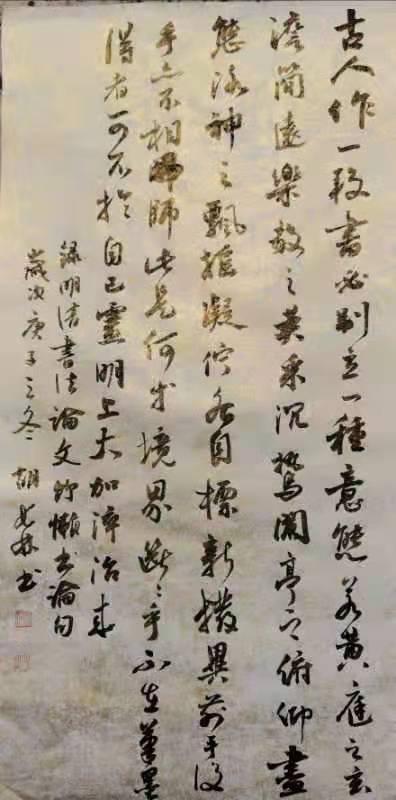 古人作一段書必别立一種意態若黄庭之玄
澹簡遠樂毅之英采沉鷙蘭亭之俯仰盡
態洛神之飄摇凝佇各自標新撥異前手後
手亦不相師此是何等境界断断乎不在筆墨
得者可不於自己靈明上大加淬治来
録明清書法論文竹懒書論句
歲次庚子之冬胡书